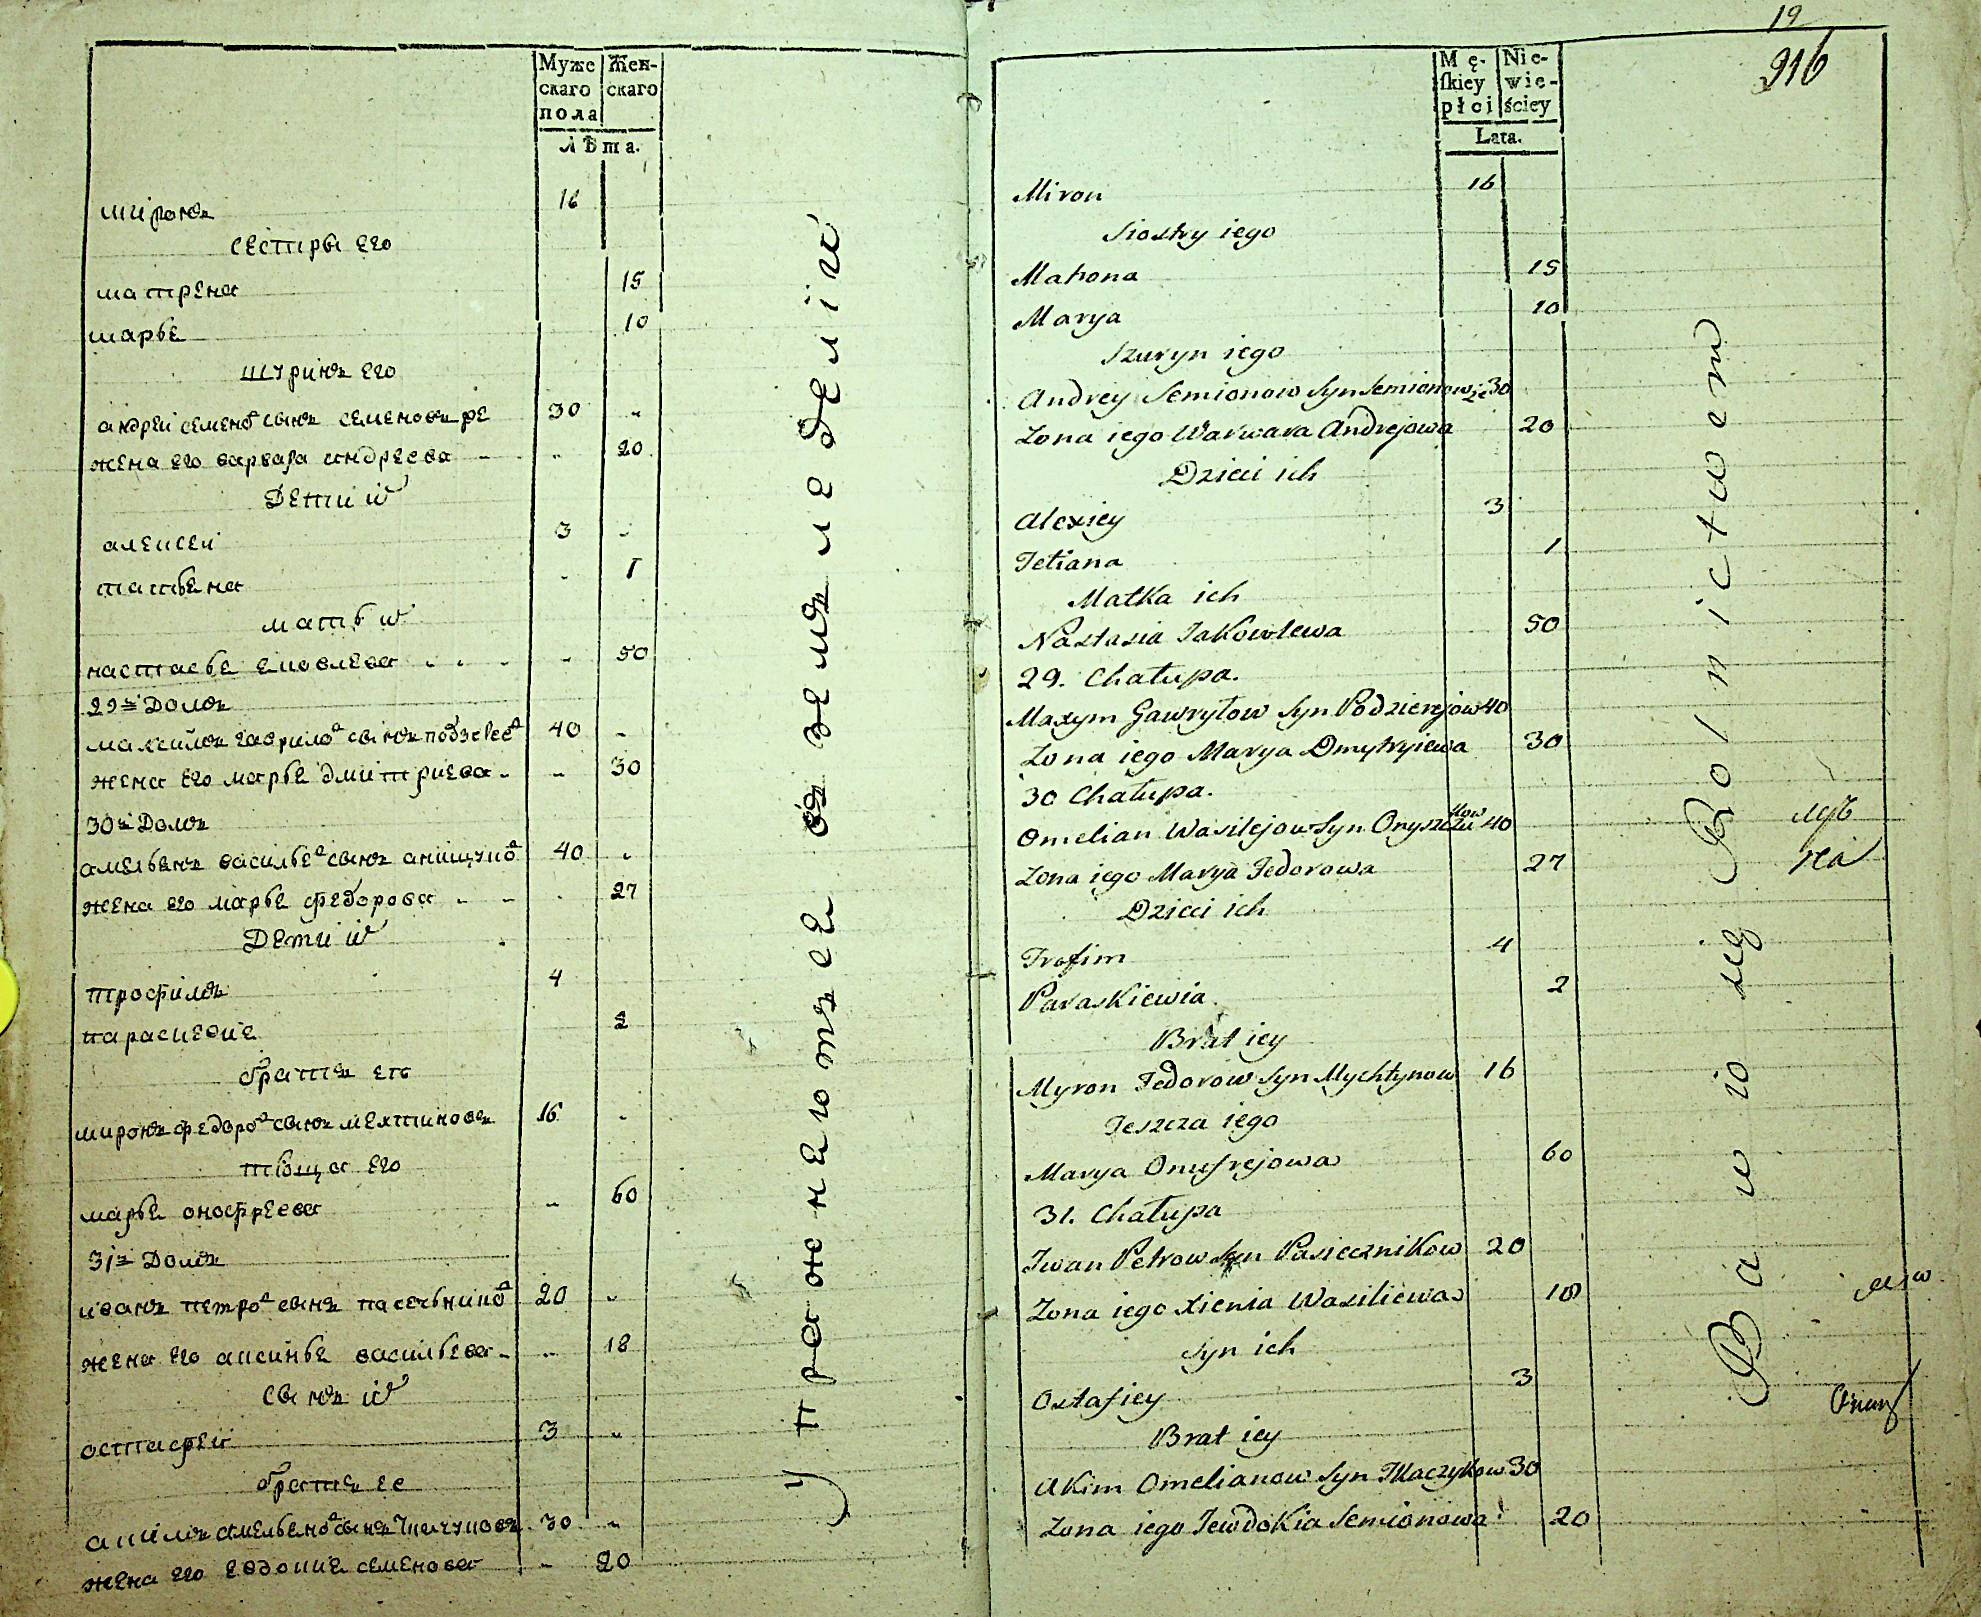 Муже скаго пола
Жен- скаго
лѣта.
миронъ 16
сестры его
матрена 15
марье 10
шуринъ его
андреи семено сынъ семеновъ 30
жена его варвара андреева 20
дети их
алексеи 3
татьена 1
мать их
настасье яковлева 50
29й домъ
максимъ гаврило сынъ 40
жена его марье дмитриева 30
30й домъ
амельенъ василье сынъ анищуко 40
жена его марье федорова 27
дети их
трофимъ 4
параскевие 2
братъ ее
миронъ федоро сынъ мехтиновъ 16
тюща его
марье онофреева 60
31й домъ
иванъ петро сынъ пасечнико 20
жена его аксинье васильева 18
сынъ их
остафеи 3
братъ ее
акимъ амельено сынъ ткачуковъ 30
жена его евдокие семенова 20
упражнеютсе въ земледелiи
19
916
Mę- skiey płci
Nie- wie- ściey
Lata.
Miron 16
Siostry iego
Matrona 15
Marya 10
Szuryn iego
Andrey Semionow Syn Semionow 30
Zona iego Warwara Andrejowa 20
Dzieci ich
Alexiey 3
Tetiana 1
Matka ich
Nastasia Jakowlewa 50
29. Chałupa.
Maxym Gawryłow Syn Podzierejow 40
Zona iego Marya Dmytryiewa 30
30 Chałupa.
Omelian Wasilejow Syn Onyszczukow 40
Zona iego Marya Fedorowa 27
Dzieci ich
Trofim 4
Paraskiewia 2
Brat iey
Myron Fedorow Syn Mychtynow 16
Teszcza iego
Marya Onufrejowa 60
31. Chałupa
Iwan Petrow Syn Pasiecznikow 20
Zona iego Xienia Wasiliewa 18
Syn ich
Ostafiey 3
Brat iey
Akim Omelianow Syn Tkaczykow 30
Zona iego Jewdokia Semionowa 20
Bawio się Rolnictwem